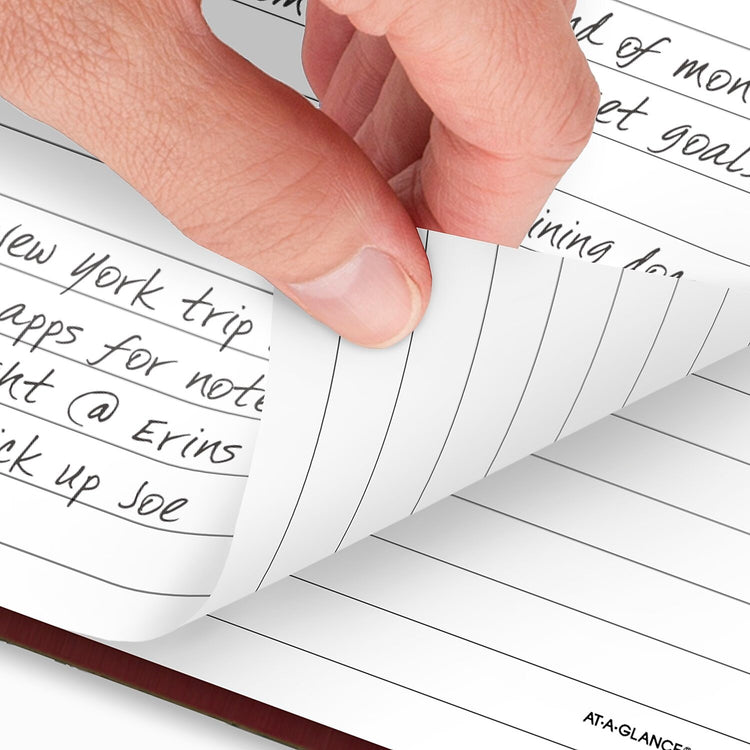 nd of mon
et goals
ining
ew York trip
apps for note
ht @ Erins
ck up Joe
AT-A-GLANCE®